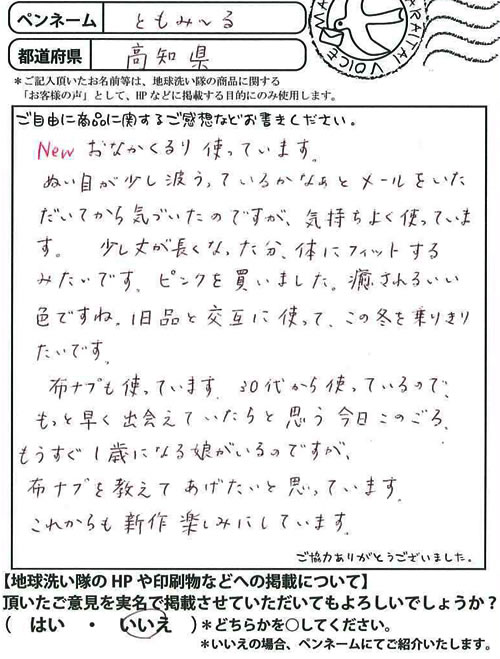 ペンネーム ともみ〜る
都道府県 高知県
＊ご記入頂いたお名前等は、地球洗い隊の商品に関する
「お客様の声」として、HPなどに掲載する目的にのみ使用します。
ご自由に商品に関するご感想などお書きください。
New おなかくるり 使っています。
ぬい目が少し波うっているかなぁとメールをいた
だいてから気づいたのですが、気持ちよく使っていま
す。 少し丈が長くなった分、体にフィットする
みたいです。ピンクを買いました。癒されるいい
色ですね。旧品と交互に使って、この冬を乗りきり
たいです。
布ナプも使っています。30代から使っているので、
もっと早く出会えていたらと思う今日このごろ。
もうすぐ1歳になる娘がいるのですが、
布ナプを教えてあげたいと思っています。
これからも新作楽しみにしています。
ご協力ありがとうございました。
【地球洗い隊のHPや印刷物などへの掲載について】
頂いたご意見を実名で掲載させていただいてもよろしいでしょうか？
（ はい ・ いいえ ）＊どちらかを○してください。
＊いいえの場合、ペンネームにてご紹介いたします。